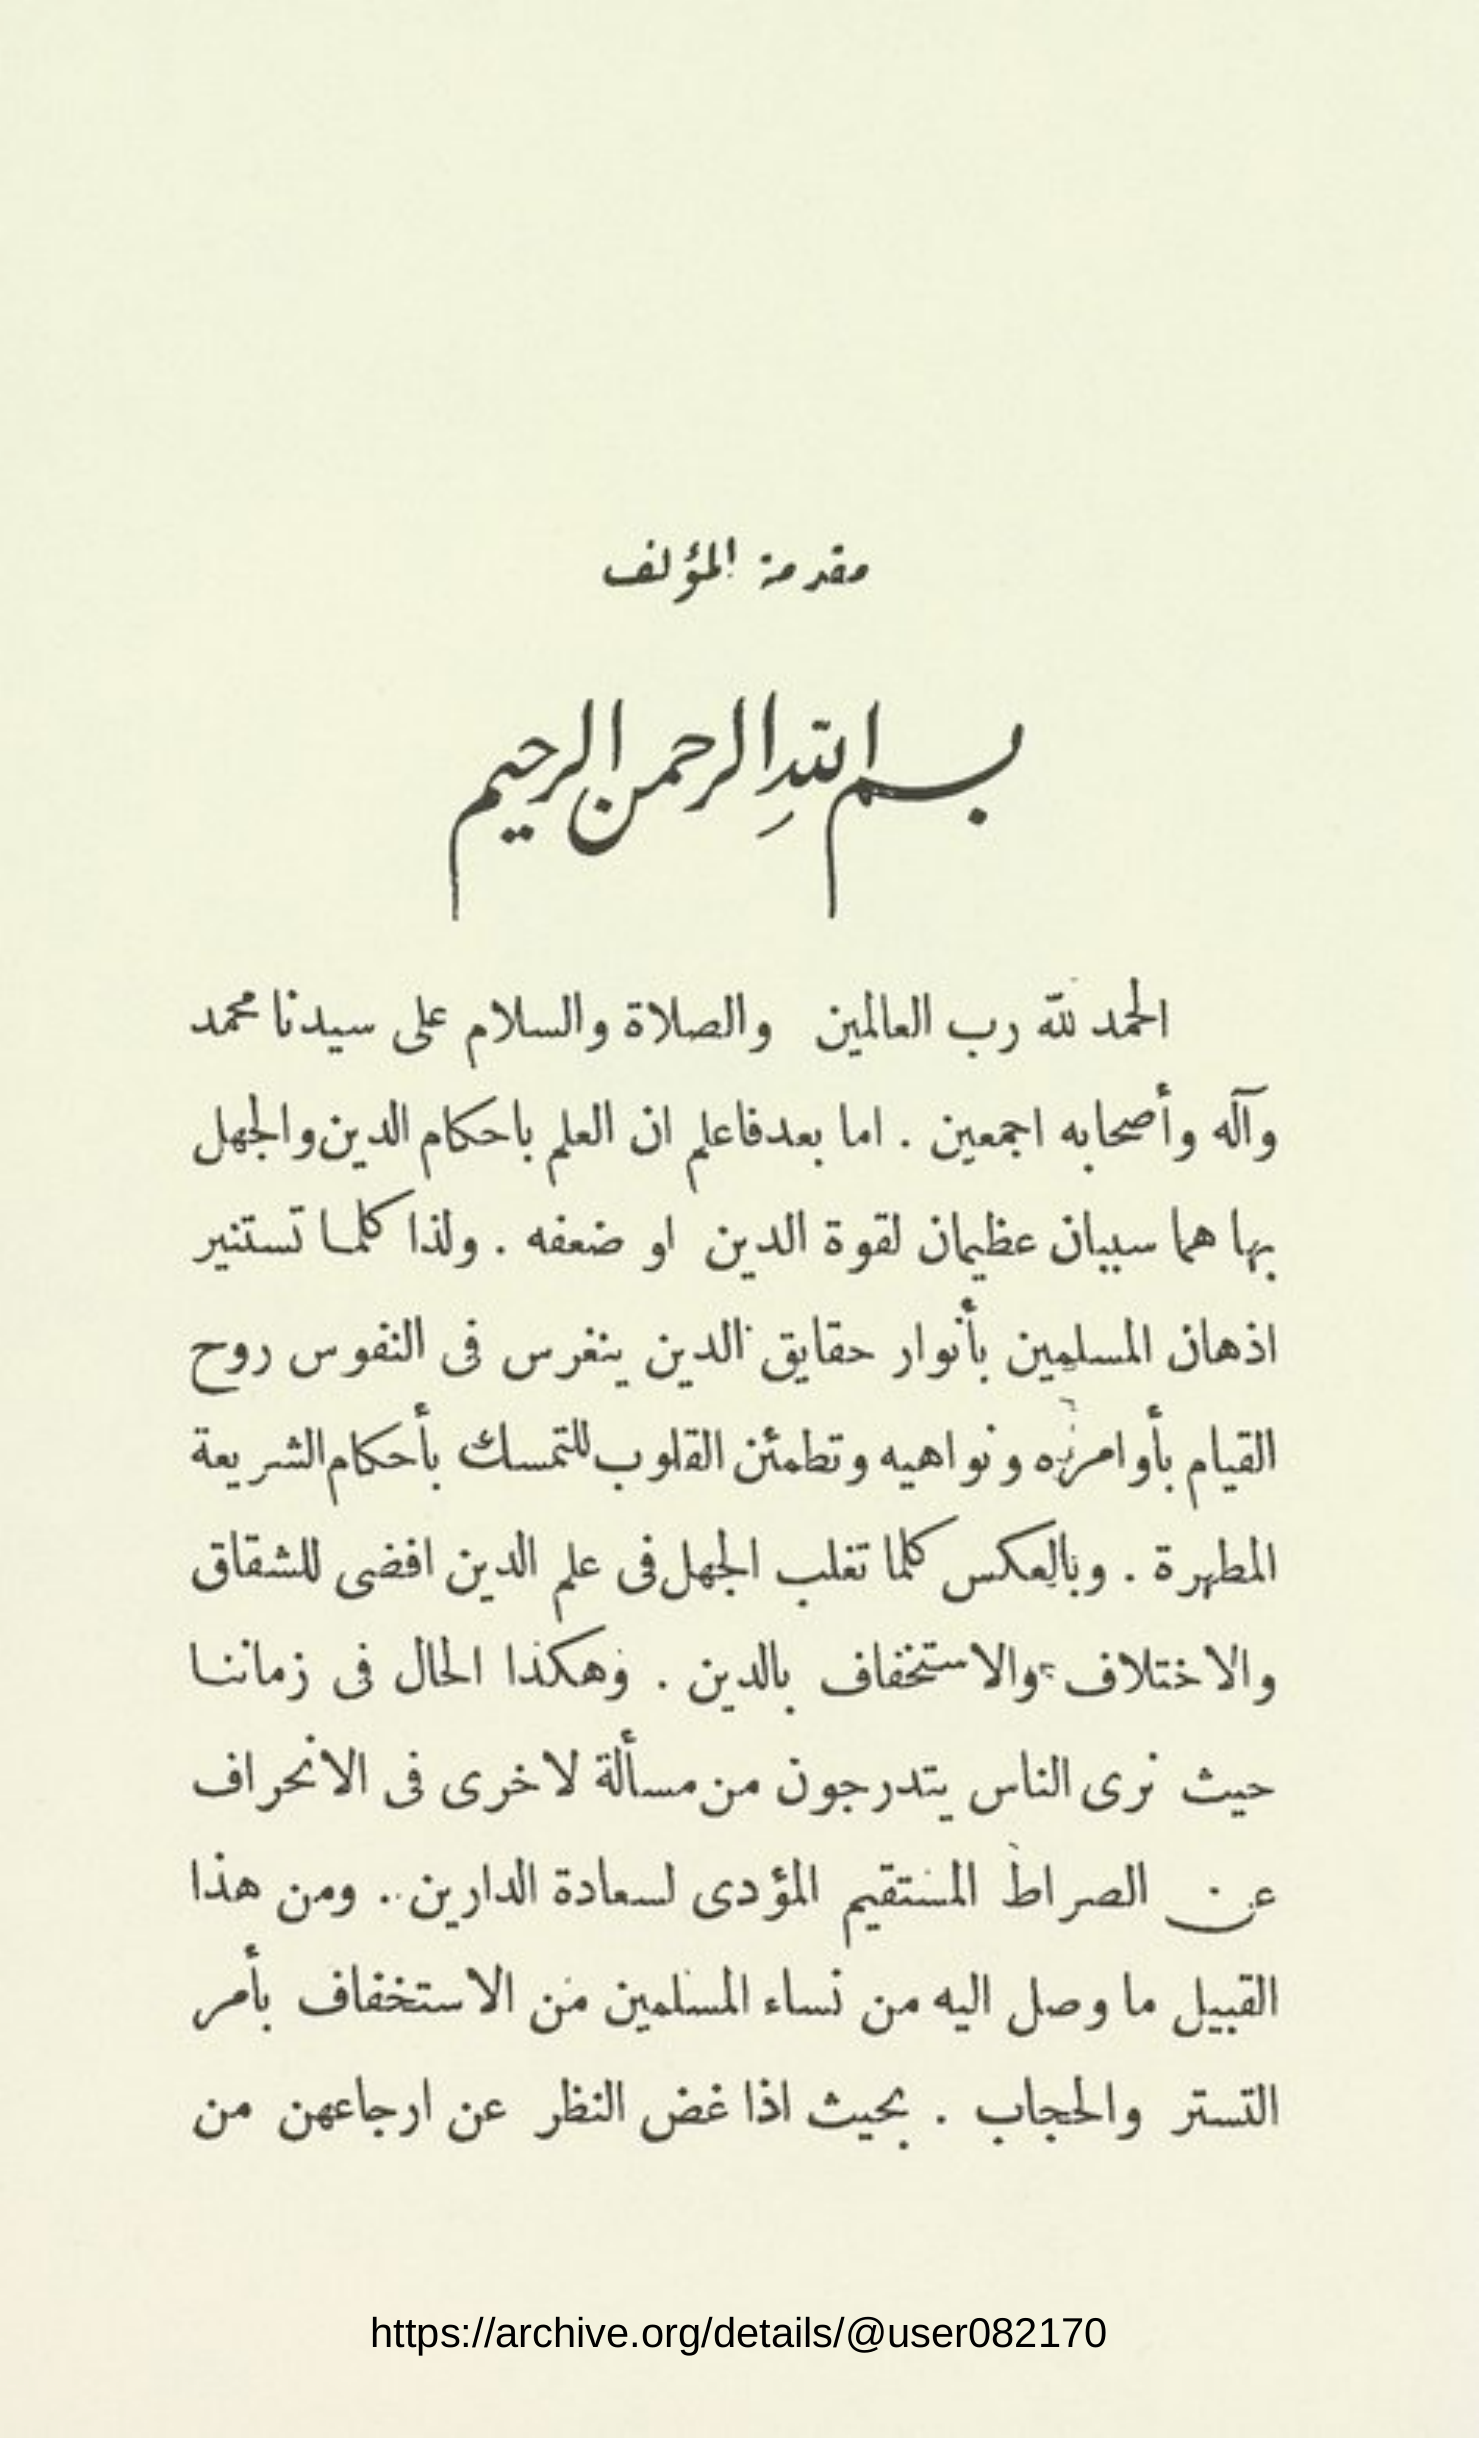 مقدمة المؤلف
بسم الله الرحمن الرحيم
الحمد لله رب العالمين والصلاة والسلام على سيدنا محمد
وآله وأصحابه اجمعين . اما بعد فاعلم ان العلم باحكام الدين والجهل
بها هما سببان عظيمان لقوة الدين او ضعفه . ولذا كلما تستنير
اذهان المسلمين بأنوار حقايق الدين ينغرس فى النفوس روح
القيام بأوامره ونواهيه وتطمئن القلوب للتمسك بأحكام الشريعة
المطهرة . وبالعكس كلما تغلب الجهل فى علم الدين افضى للشقاق
والاختلاف والاستخفاف بالدين . وهكذا الحال فى زماننا
حيث نرى الناس يتدرجون من مسألة لاخرى فى الانحراف
عن الصراط المستقيم المؤدى لسعادة الدارين . ومن هذا
القبيل ما وصل اليه من نساء المسلمين من الاستخفاف بأمر
التستر والحجاب . بحيث اذا غض النظر عن ارجاعهن من
https://archive.org/details/@user082170